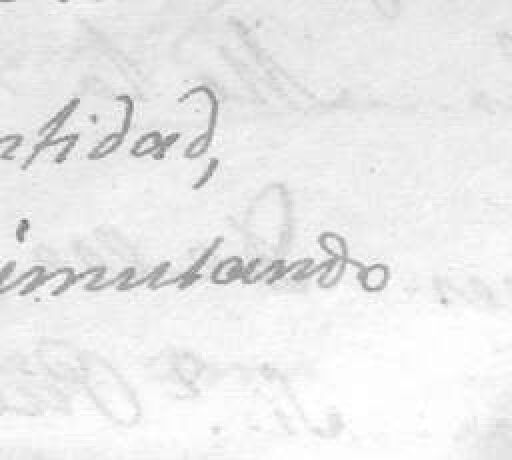 ntidad,
imutando